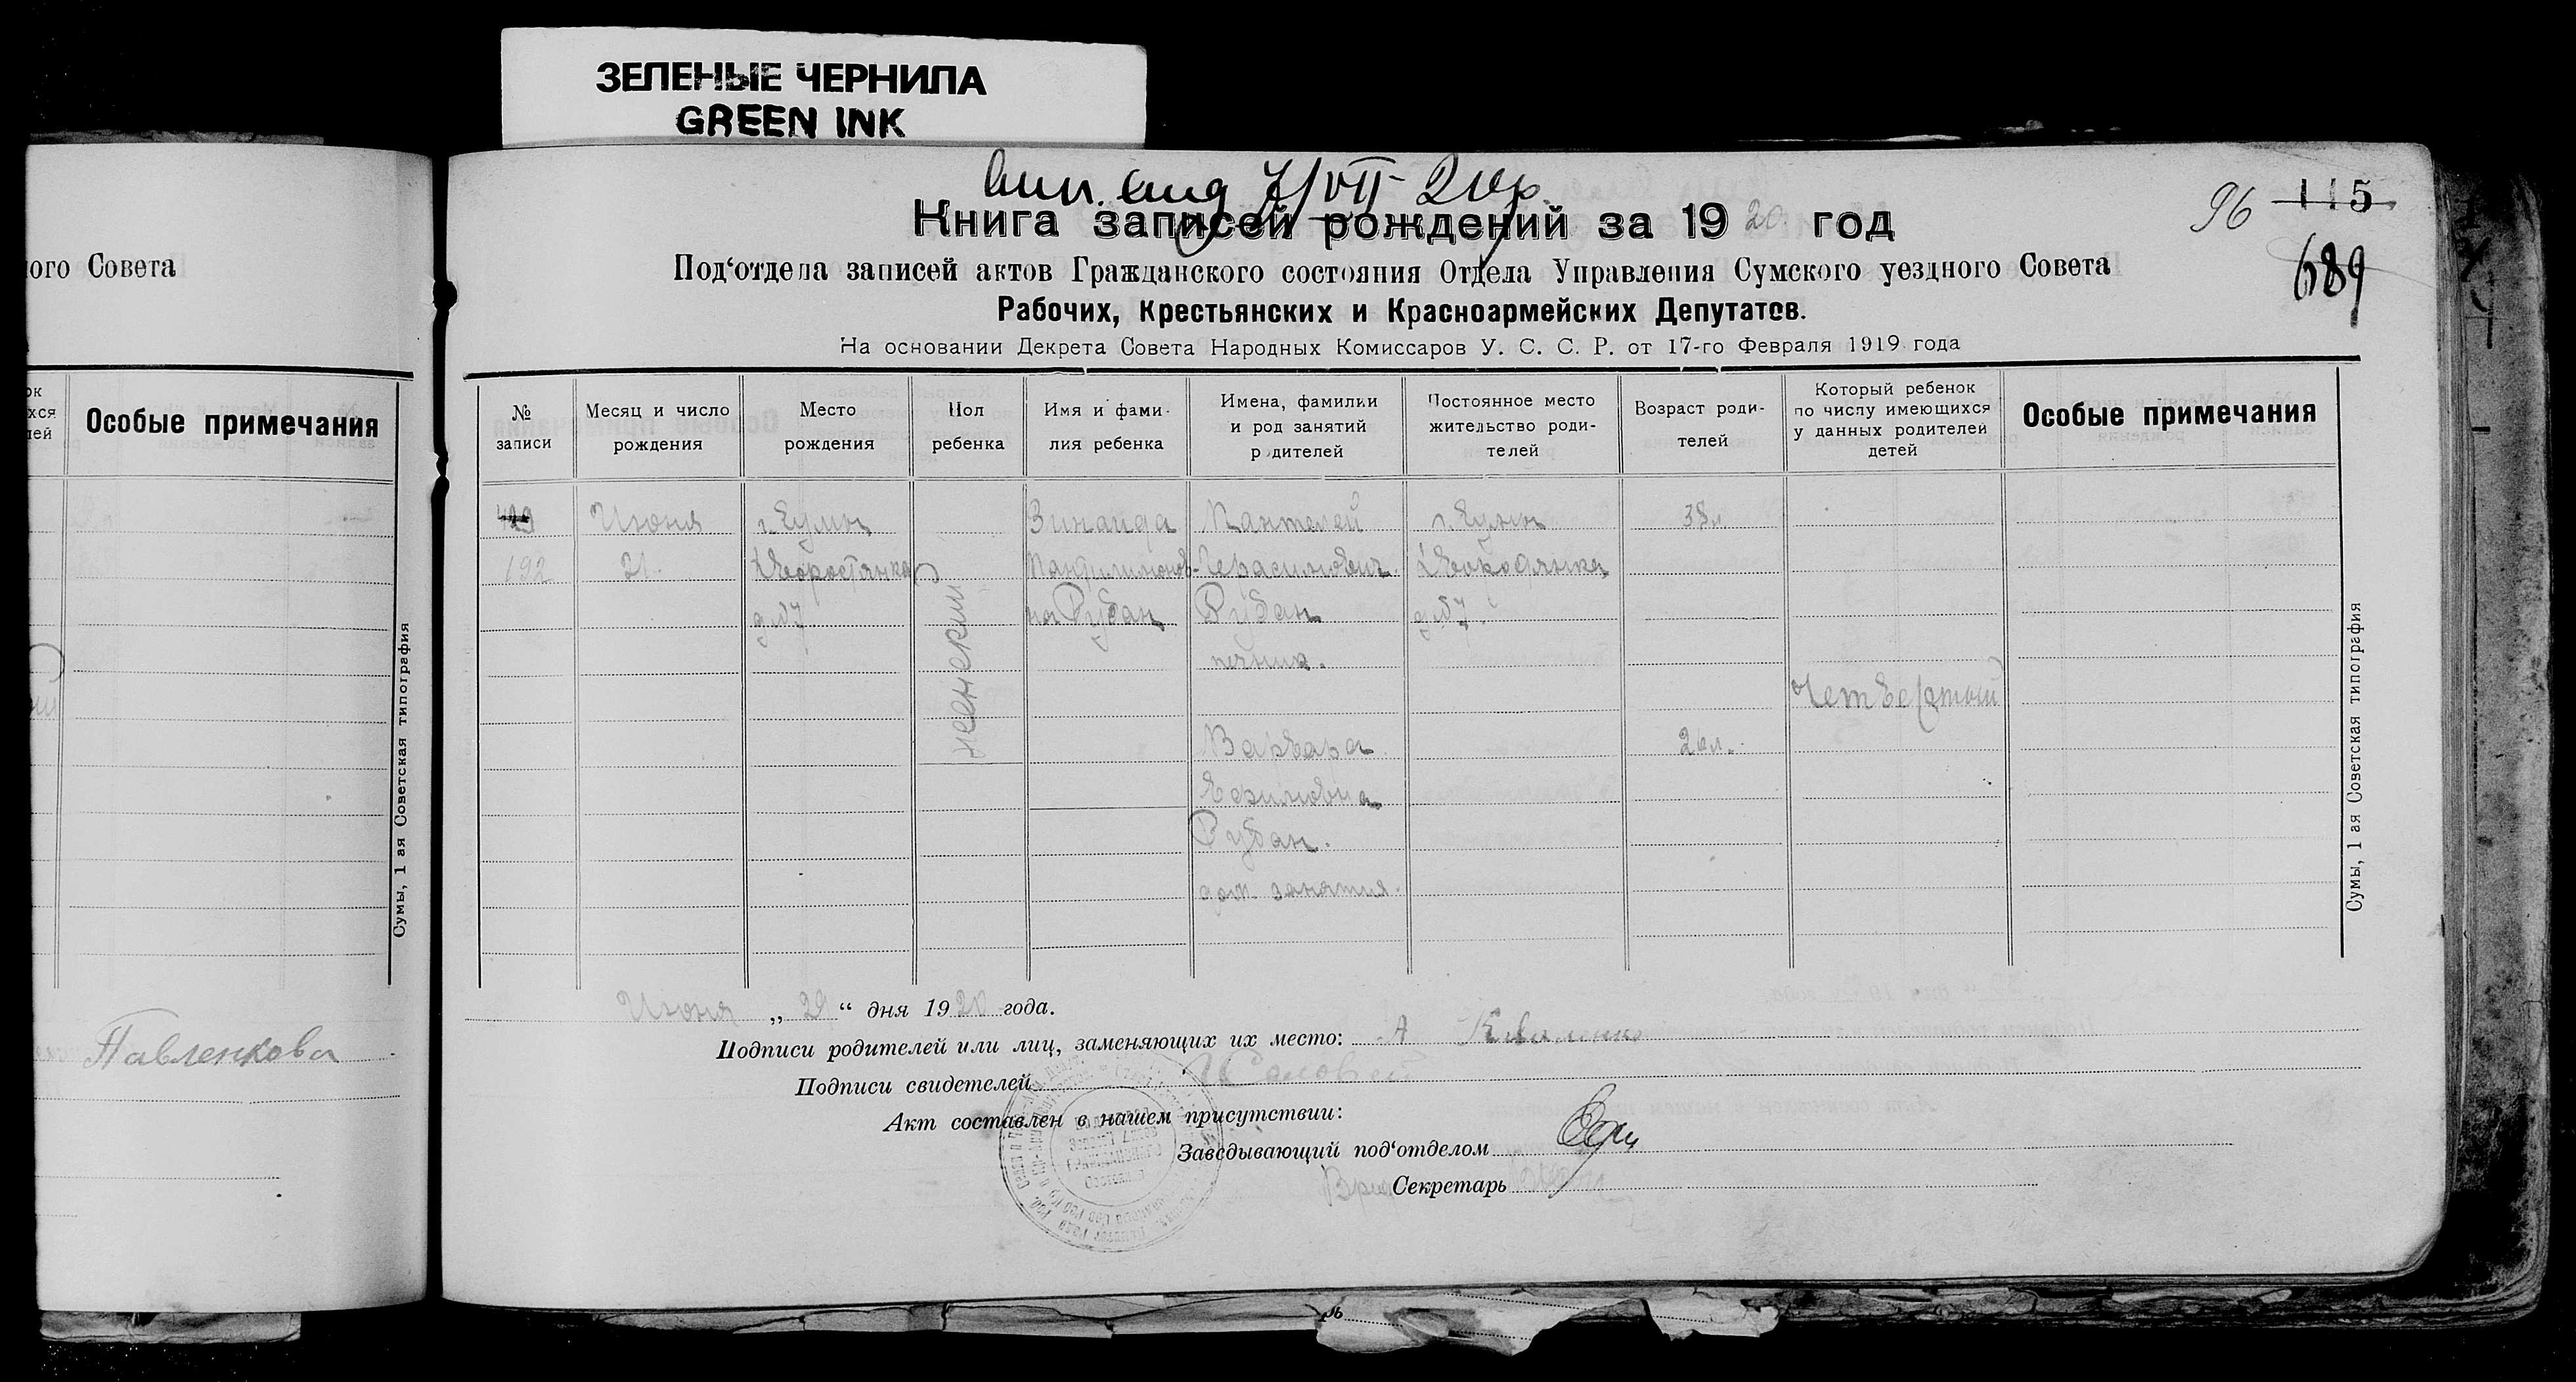 ЗЕЛЕНЫЕ ЧЕРНИЛА
GREEN INK
7/VII 20 г.
96 115
689
Книга записей рождений за 1920 год
Под‘отдела записей актов Гражданского состояния Отдела Управления Сумского уездного Совета
Рабочих, Крестьянских и Красноармейских Депутатов.
На основании Декрета Совета Народных Комиссаров У. С. С. Р. от 17-го Февраля 1919 года
ого Совета
ок
хся
лей
Особые примечания
Сумы, 1 ая Советская типография
Павленкова
№ записи
Месяц и число рождения
Место рождения
Пол ребенка
Имя и фамилия ребенка
Имена, фамилии и род занятий родителей
Постоянное место жительство родителей
Возраст родителей
Который ребенок по числу имеющихся у данных родителей детей
Особые примечания
192
Июня
21
г. Сумы
д №7
женский
Зинаида
на Рубан
Пантелей
Герасимович
Рубан
печник.
г. Сумы
д №7
38 л
Варвара
Ефимовна
Рубан.
дом. занятия
26 л.
Четвертый
Сумы, 1 ая Советская типография
Июня „29“ дня 1920 года.
Подписи родителей или лиц, заменяющих их место: А
Подписи свидетелей
Акт составлен в нашем присутствии:
Заведывающий под‘отделом
Секретарь